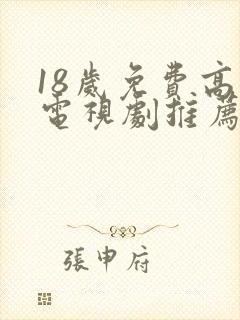 18歲免費高
電視劇推薦
張申府